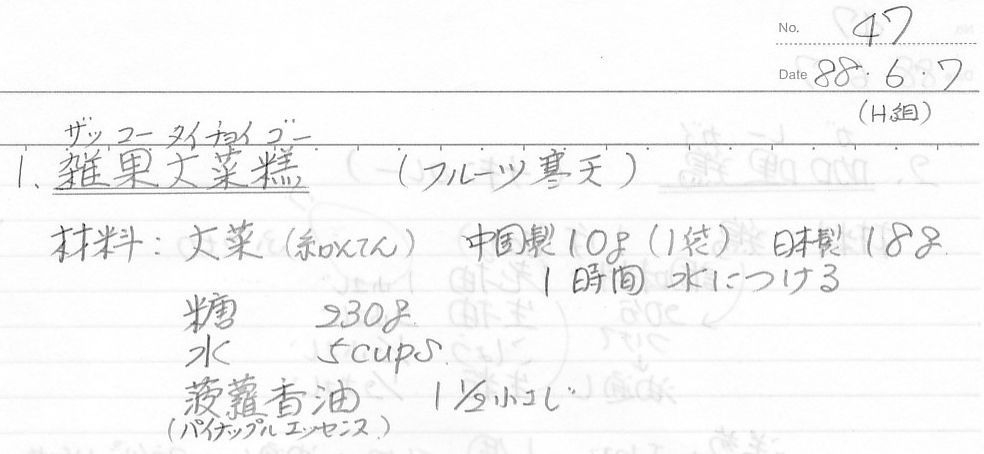 No. 47
Date 88・6・7
(H組)
ザッ コー タイ チョイ ゴー
1. 雑果大菜糕 (フルーツ寒天)
材料: 大菜(糸かんてん) 中国製10g(1袋) 日本製18g.
1時間 水につける
糖 230g.
水 5cups.
菠蘿香油 1 1/2小さじ
(パイナップルエッセンス)